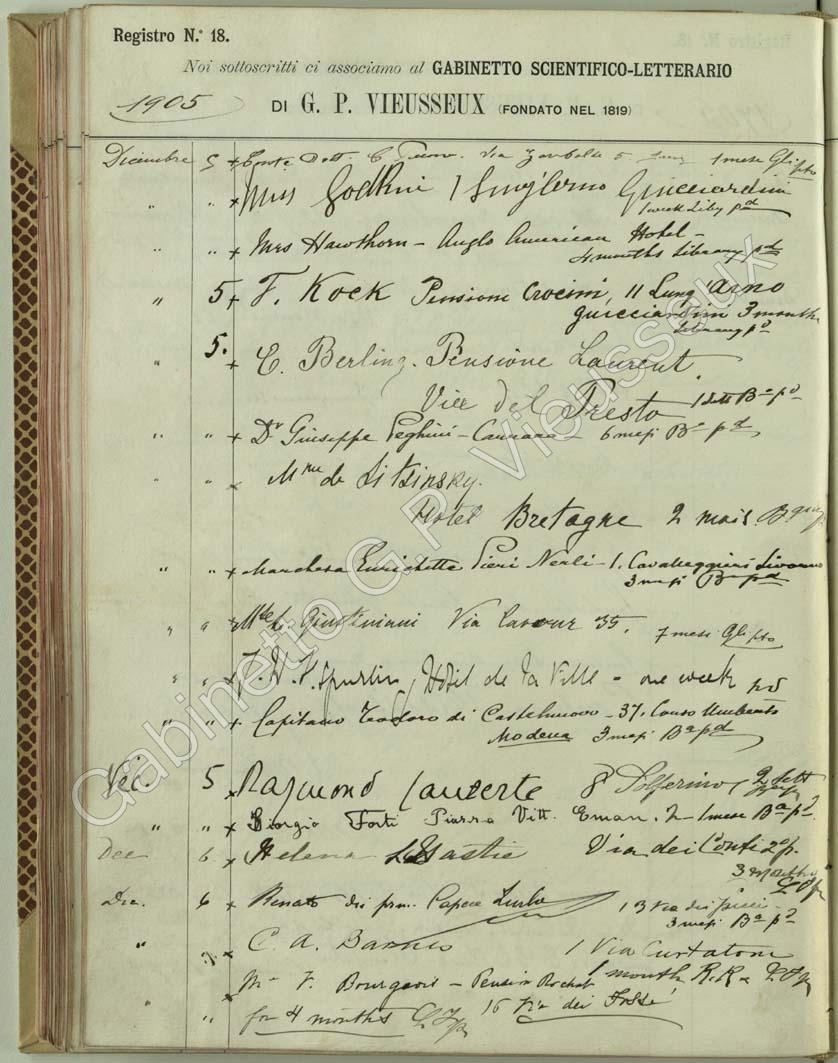 Registro N.° 18.
Noi sottoscritti ci associamo al GABINETTO SCIENTIFICO-LETTERARIO
1905 DI G. P. VIEUSSEUX (FONDATO NEL 1819)
Dicembre 5 + Conte Dott. C. Via 5 1 mese Gli pto
" " + Miss Godkin 1 Lung'Arno Guicciardini
1 week Liby pd
" " + Mrs Hawthorn - Anglo American Hotel -
4 months Library pd
" 5 + F. Kock Pensione Crocini, 11 Lung'Arno
guicciardini 3 months
library pd
" 5. + C. Berling. Pensione Laurent
Vice del Presto 1 Sett Ba pd
" " + Dr Giuseppe Peghini - Carrara - 6 mesi Ba pd
" " x Mme de Litsinsky.
Hotel Bretagne 2 mois. B
" " + Marchesa Enrichetta Pieri Nerli - 1. Cavalleggieri Livorno
3 mesi Ba pd
" " Giustiniani Via Cavour 35. 7 mesi Gli pto
" " + J. W. H. Spurlin, Hôtel de la Ville - one week pd
" " + Capitano Teodoro di Castelnuovo - 37, Corso Umberto
Modena 3 mesi Ba pd
5 x Raymond Lauzerte 8 Solferino 2 Sett
" " x Giorgio Forti Piazza Vitt. Eman. 2 - 1 mese Ba pd
Dec 6. x Helena Via dei Conti 2° p.
3 months
Dic. 6 x Renato dei prin. Capece Zurlo 13 Via dei
3 mesi Ba pd
" x C. A. Barnes 1 Via Curtatone
1 month R.R.
x F. Bourgeois - Pension Rochat
" " for 4 months 16 Via dei Fossi
Gabinetto G.P. Vieusseux